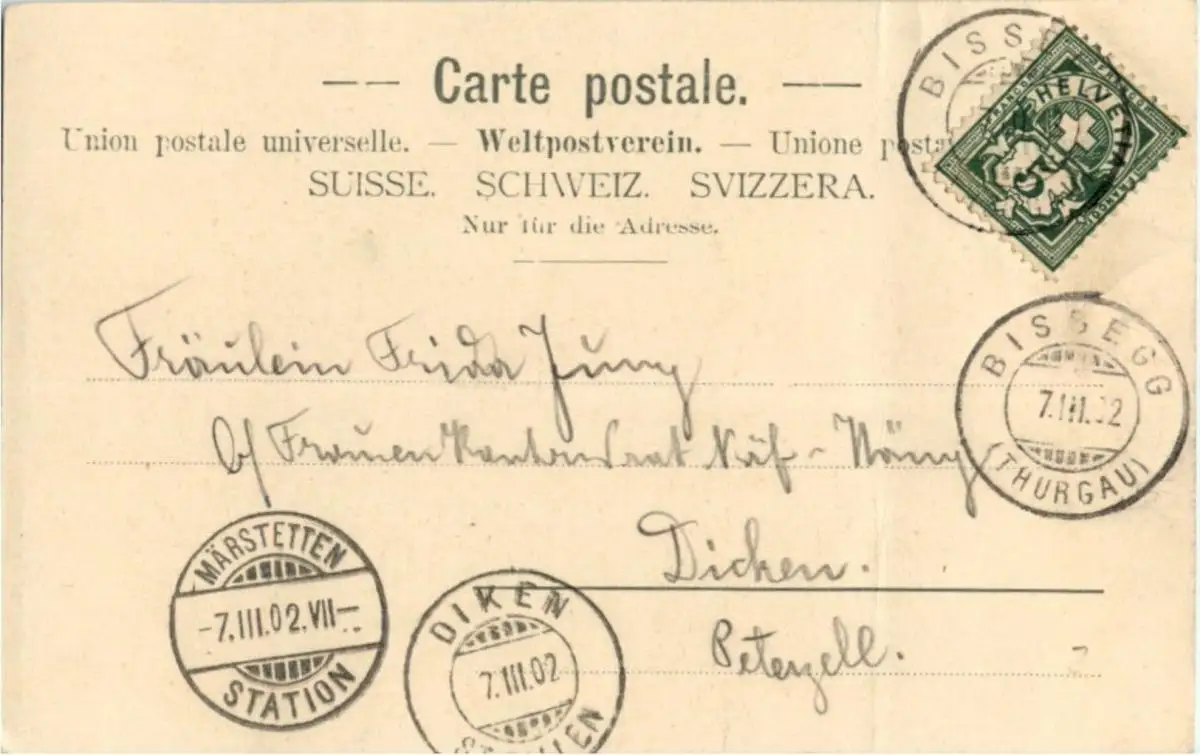 Carte postale.
Union postale universelle. — Weltpostverein. — Unione posta
SUISSE. SCHWEIZ. SVIZZERA.
Nur für die Adresse.
BISSE
FRANCO HELVETIA
5
BISSEGG
7.III.02
(THURGAU)
Fräulein Frida Jung
b/ Frauen Kantonsrat Näf-
Dicken.
Peterzell.
MÄRSTETTEN
-7.III.02.VII-
STATION
DIKEN
7.III.02
ST. GALLEN